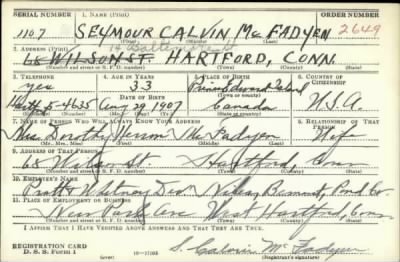 SERIAL NUMBER 1. NAME (Print) ORDER NUMBER
1107 SEYMOUR CALVIN Mc FADYEN 2649
(First) (Middle) (Last)
2. ADDRESS (Print)
68 WILSON ST. HARTFORD, CONN.
(Number and street or R. F. D. number) (Town) (County) (State)
3. TELEPHONE 4. AGE IN YEARS 5. PLACE OF BIRTH 6. COUNTRY OF CITIZENSHIP
yes 33 Prince Edward Island
DATE OF BIRTH
5-4635 Aug 29 1907 Canada U.S.A.
(Exchange) (Number) (Mo.) (Day) (Yr.) (State or country)
7. NAME OF PERSON WHO WILL ALWAYS KNOW YOUR ADDRESS 8. RELATIONSHIP OF THAT PERSON
Mrs. Dorothy Mc Fadyen Wife
(Mr., Mrs., Miss) (First) (Middle) (Last)
9. ADDRESS OF THAT PERSON
68 Wilson St Hartford, Conn
(Number and street or R. F. D. number) (Town) (County) (State)
10. EMPLOYER'S NAME
Pratt & Whitney Div Niles, Bement, Pond Co
11. PLACE OF EMPLOYMENT OR BUSINESS
New Park Ave West Hartford, Conn
(Number and street or R. F. D. number) (Town) (County) (State)
I AFFIRM THAT I HAVE VERIFIED ABOVE ANSWERS AND THAT THEY ARE TRUE.
REGISTRATION CARD
D. S. S. Form 1 (over) S. Calvin Mc Fadyen
(Registrant's signature)